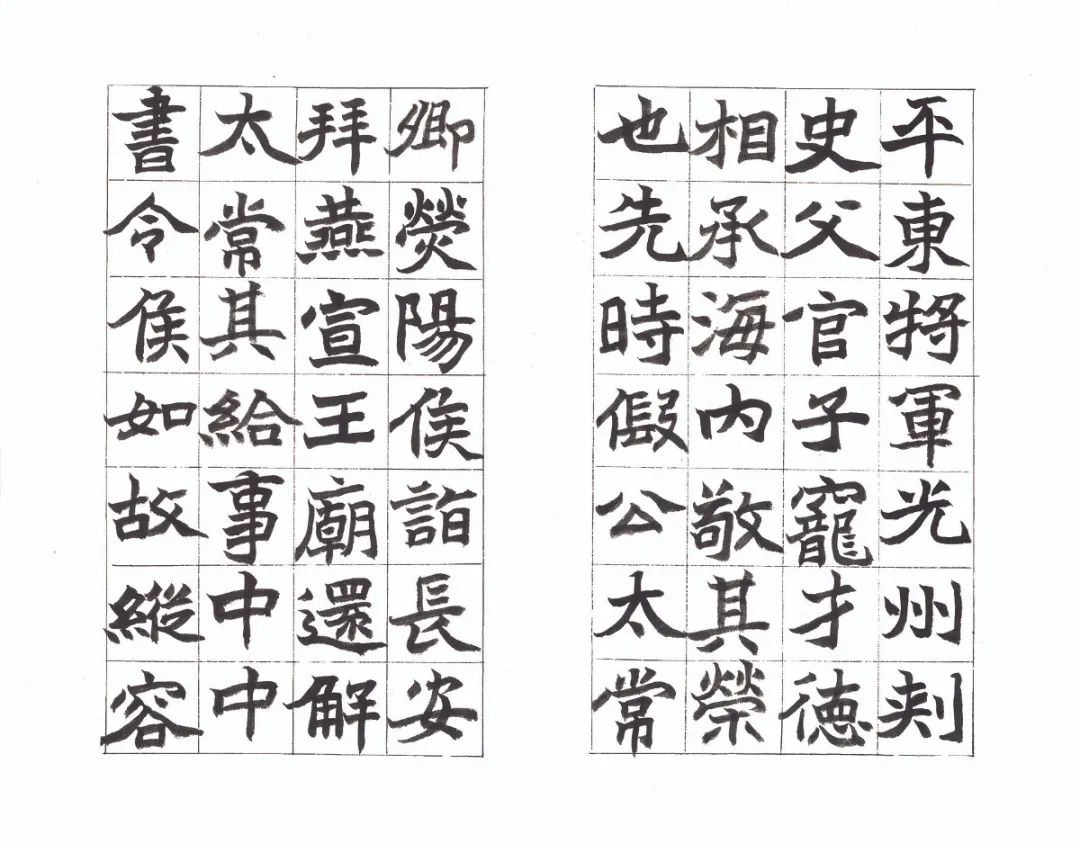 平東將軍光州刾
史父官子寵才德
相承海内敬其榮
也先時假公太常
卿熒陽侯詣長安
拜燕宣王廟還解
太常其給事中中
書令侯如故縱容